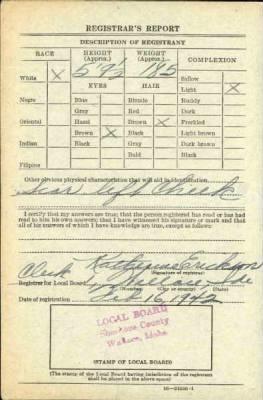 REGISTRAR'S REPORT
DESCRIPTION OF REGISTRANT
RACE
HEIGHT (Approx.)
WEIGHT (Approx.)
COMPLEXION
White X
5' 9½
185
Sallow
EYES
HAIR
Light X
Negro
Blue
Blonde
Ruddy
Gray
Red
Dark
Oriental
Hazel
Brown X
Freckled
Brown X
Black
Light brown
Indian
Black
Gray
Dark brown
Bald
Black
Filipino
Other obvious physical characteristics that will aid in identification
Scar left Cheek
I certify that my answers are true; that the person registered has read or has had
read to him his own answers; that I have witnessed his signature or mark and that
all of his answers of which I have knowledge are true, except as follows:
Clerk Katherine Erickson
(Signature of registrar)
Registrar for Local Board
Date of registration Feb 16, 1942
LOCAL BOARD
Shoshone County
Wallace, Idaho
(STAMP OF LOCAL BOARD)
(The stamp of the Local Board having jurisdiction of the registrant
shall be placed in the above space.)